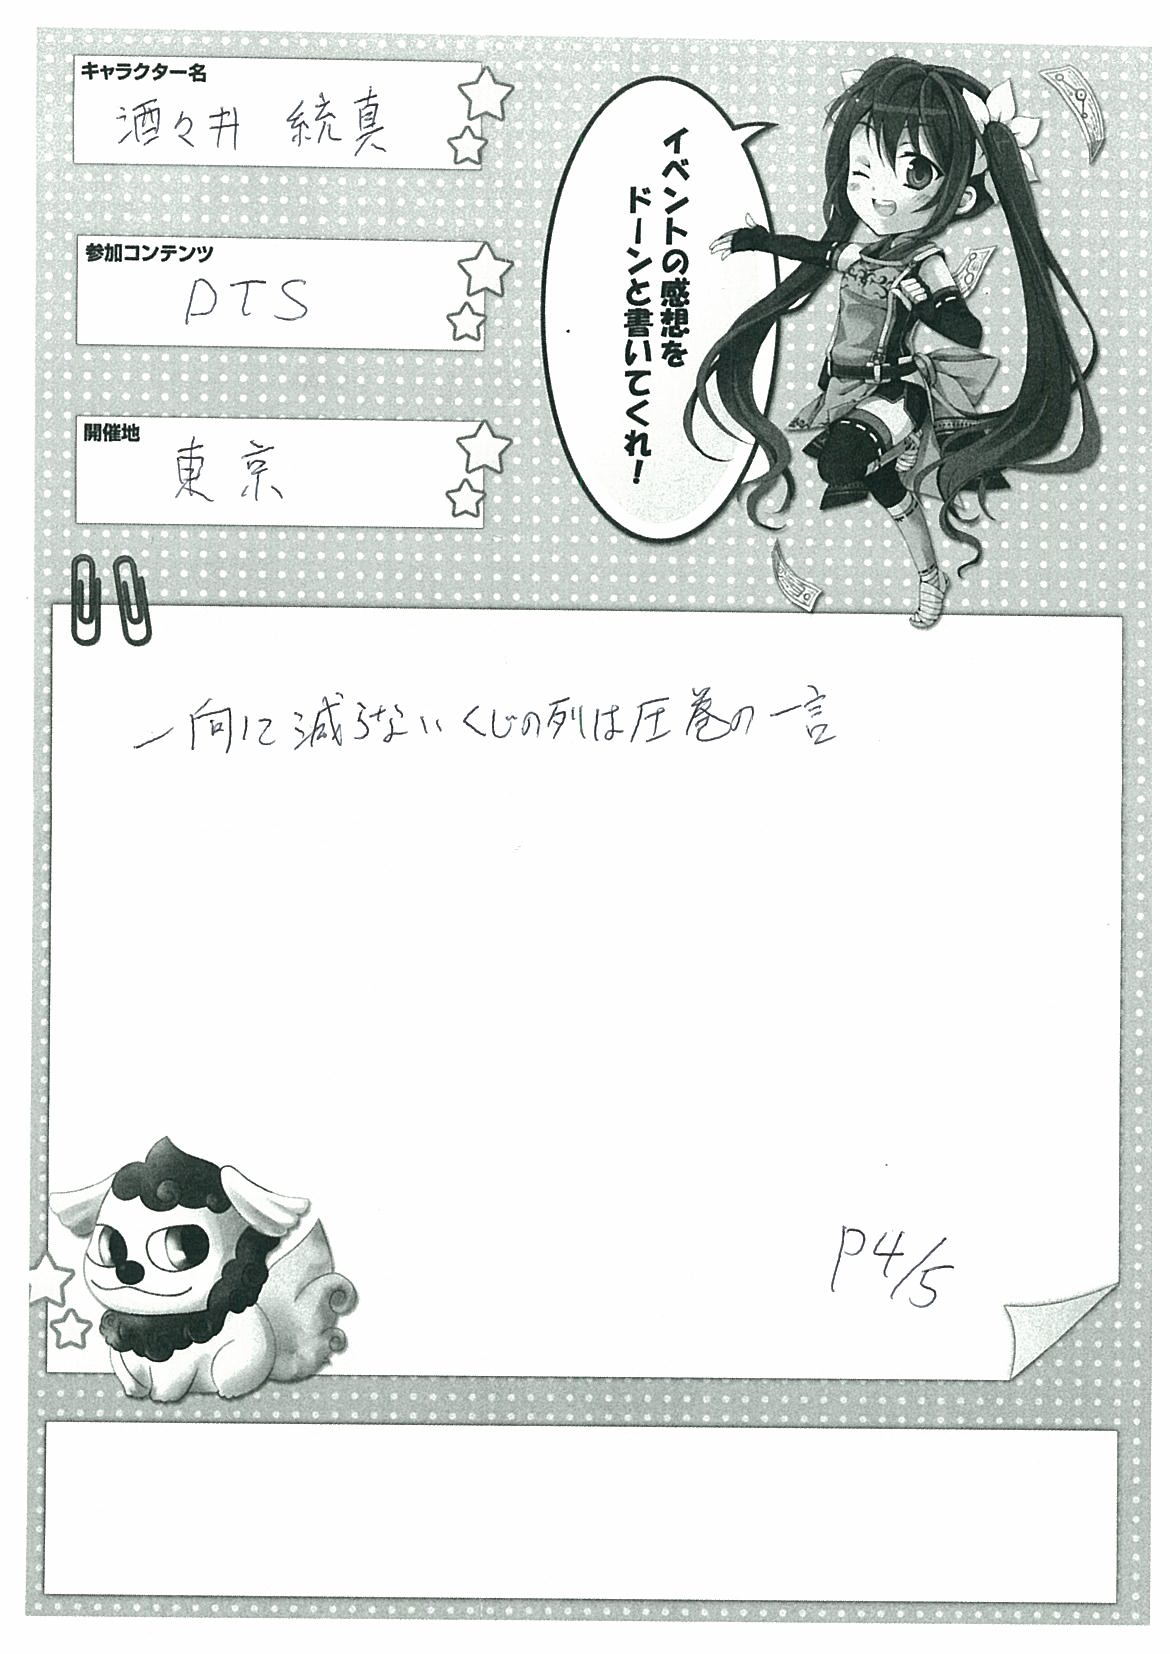 キャラクター名
酒々井 統真
参加コンテンツ
DTS
開催地
東京
イベントの感想を
ドーンと書いてくれ！
一向に減らないくじの列は圧巻の一言
P4/5